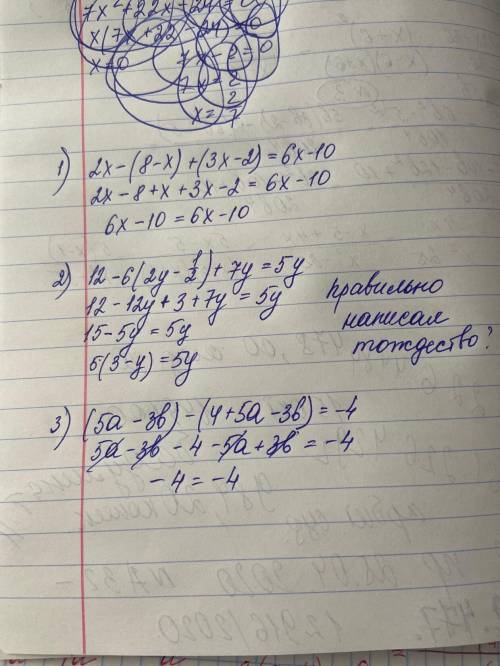 7x²+22x+24x=0
x(7x+22-24)=0
x=0 7x-2=0
7x=2
x=2/7
1) 2x-(8-x)+(3x-2)=6x-10
2x-8+x+3x-2=6x-10
6x-10=6x-10
2) 12-6(2y-1/2)+7y=5y
12-12y+3+7y=5y
15-5y=5y
5(3-y)=5y
правильно
написал
тождество?
3) (5a-3b)-(4+5a-3b)=-4
5a-3b-4-5a+3b=-4
-4=-4